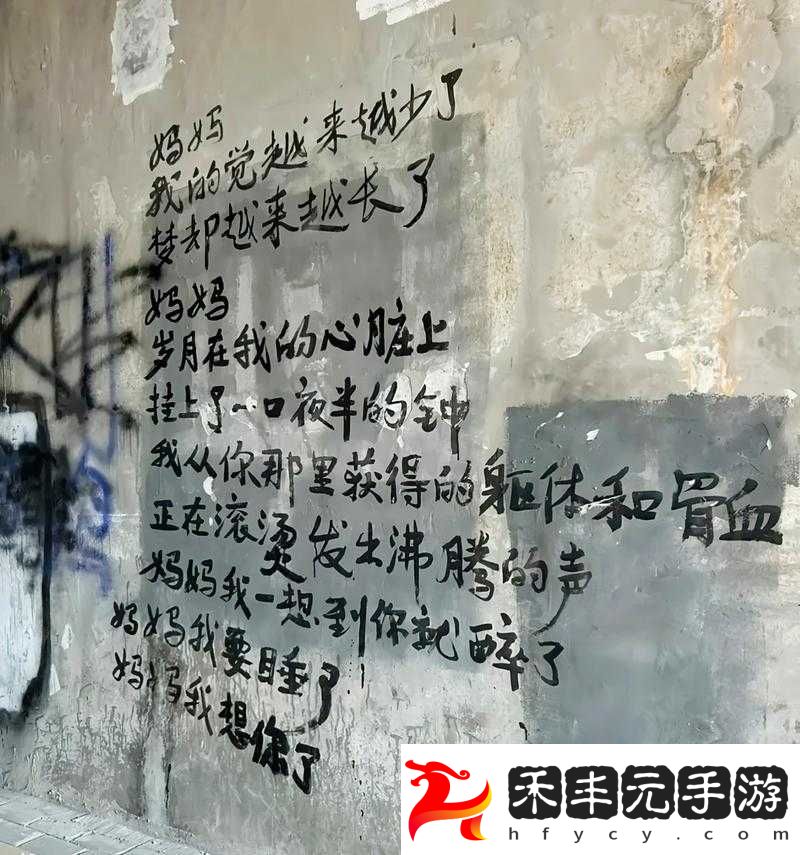 妈妈
我的觉越来越少了
梦却越来越长了
妈妈
岁月在我的心脏上
挂上了一口夜半的钟
我从你那里获得的躯体和骨血
正在滚烫发出沸腾的声
妈妈我一想到你就醉了
妈妈我要睡了
妈妈我想你了
禾丰元手游
hfycy.com